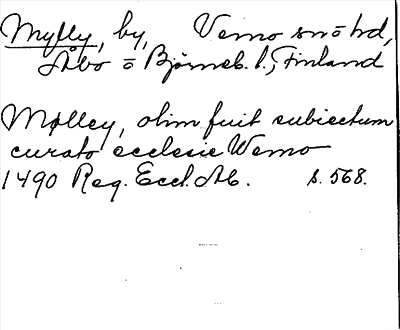 Mylly, by, Vemo sn o hd,
Åbo o Björneb. l., Finland
Mølley, olim fuit subiectum
curato ecclesie Wemo
1490 Reg. Eccl. Ab. s. 568.